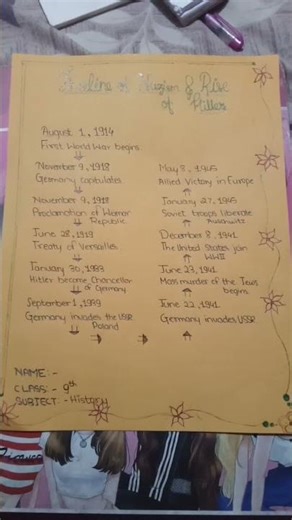 Timeline of Nazism & Rise
of Hitler
August 1, 1914
First World War begins
November 9, 1918
Germany capitulates
November 9, 1918
Proclamation of Weimar
Republic
June 28, 1919
Treaty of Versailles
January 30, 1933
Hitler become Chancellor
of Germany
September 1, 1939
Germany invades the USSR
Poland
May 8, 1945
Allied Victory in Europe
January 27, 1945
Soviet troops liberate
Auschwitz
December 8, 1941
The United States join
WWII
June 23, 1941
Mass murder of the Jews
begins
June 22, 1941
Germany invades USSR
NAME:-
CLASS:- 9th
SUBJECT:- History